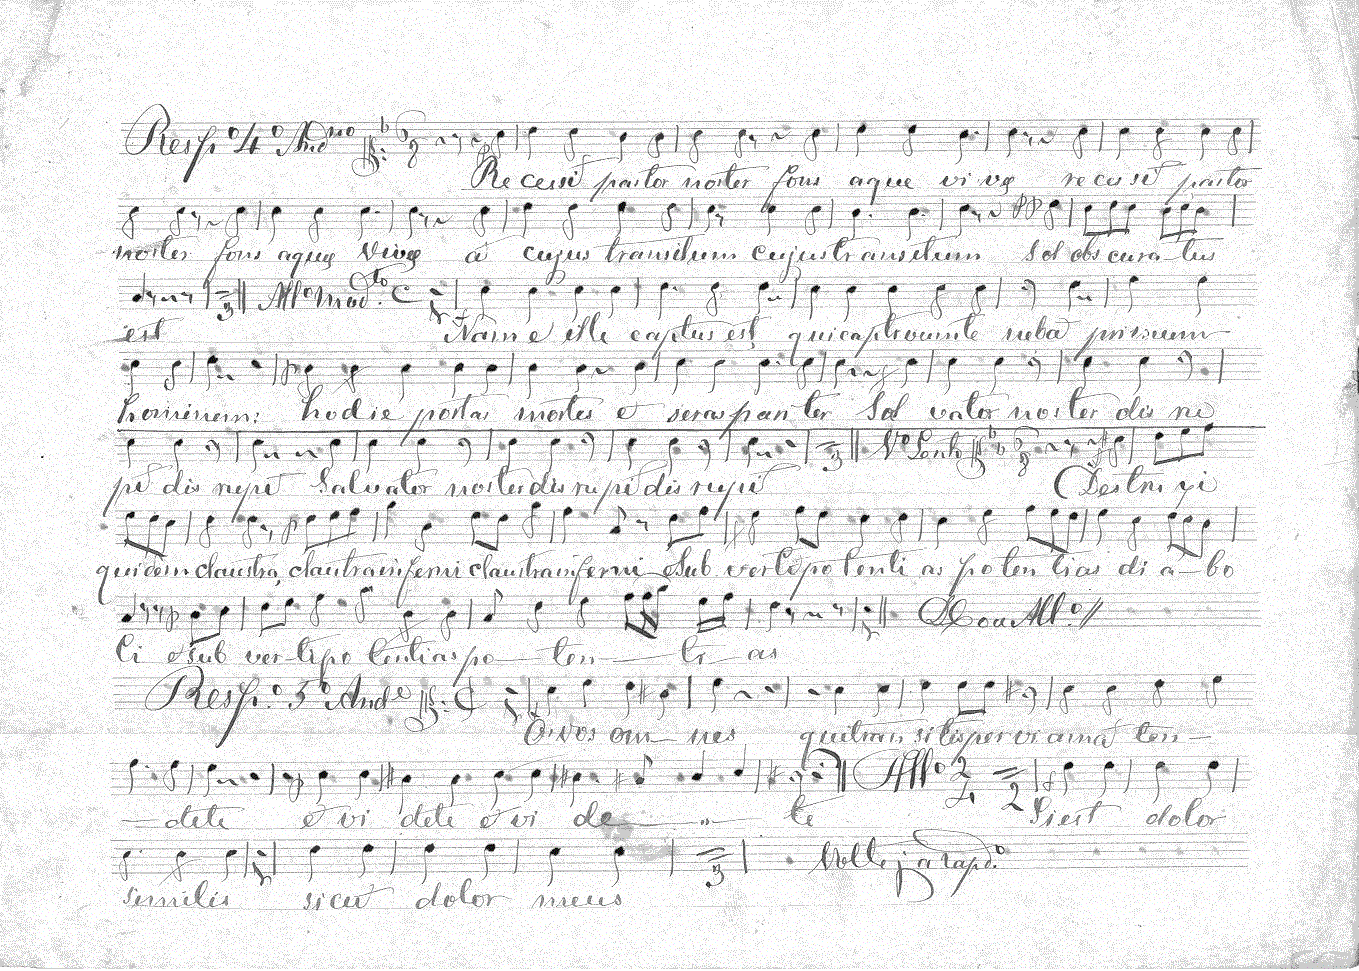 Resp.º 4º And.no
Recessit pastor noster fons aque vivę recessit pastor
noster fons aquę vivę a cujus transitum cujus transitum Sol obscura-tus
3 All.º Mod.to C
est Nam e ille captus est qui captivum primum
hominem: hodie portas mortes et seras pariter Sal vator noster dis ru
3
pit dis rupit Salvator noster dis rupit dis rupit Destru xi
quidem claustra, claustra inferni claustra inferni et sub vertit potenti as potentias di a-bo
All.º
li et sub ver-tit po tentias po-ten-ti-as
Resp.º 5º And.e
O vos om-nes qui transitis per viam at ten-
All.º 2 4 2
-dite et vi dete et vi de-te Si est dolor
3 Volte
similis sicut dolor meus